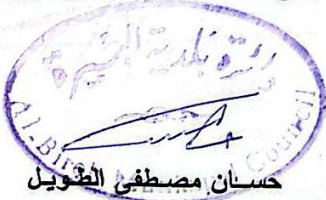 بلدية البيرة
Al-Bireh Municipal Council
حسان مصطفى الطويل